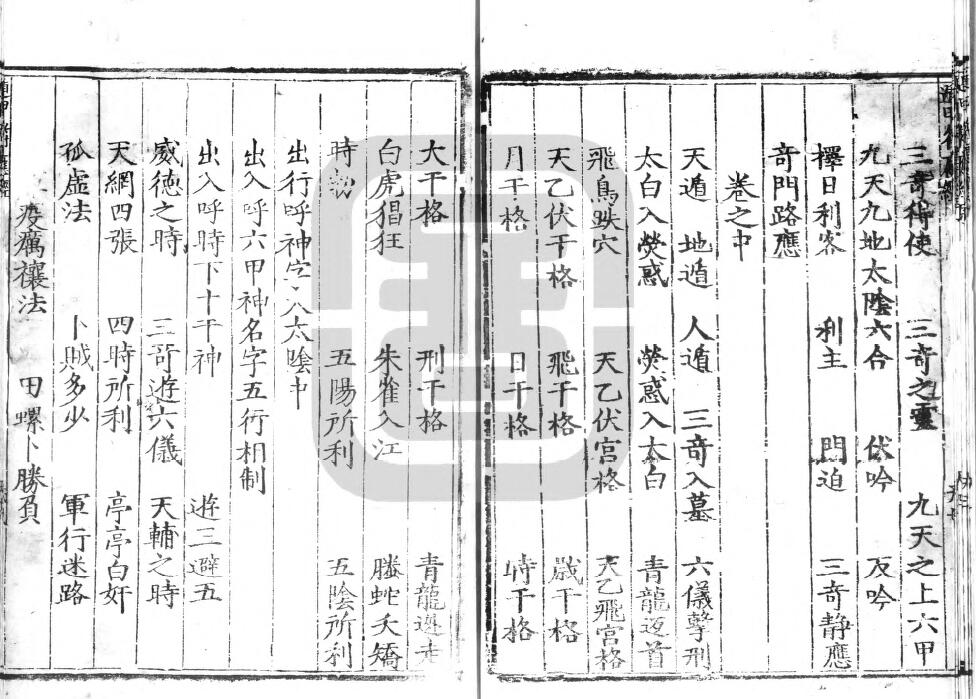 三奇得使 三奇之靈 九天之上六甲
九天九地太陰六合 伏吟 反吟
擇日利客 利主 門迫 三奇静應
奇門路應
卷之中
天遁 地遁 人遁 三奇入墓 六儀擊刑
太白入熒惑 熒惑入太白 青龍迈首
飛鳥跌穴 天乙伏宫格 天乙飛宫格
天乙伏干格 飛干格 歲干格
月干格 日干格 時干格
大干格 刑干格 青龍迯走
白虎猖狂 朱雀入江 螣蛇夭矯
時勃 五陽所利 五陰所利
出行呼神字入太陰中
出入呼六甲神名字五行相制
出入呼時下十干神 遊三避五
威德之時 三奇遊六儀 天輔之時
天網四張 四時所利 亭亭白奸
孤虛法 卜賊多少 軍行迷路
疫癘禳法 田螺卜勝負